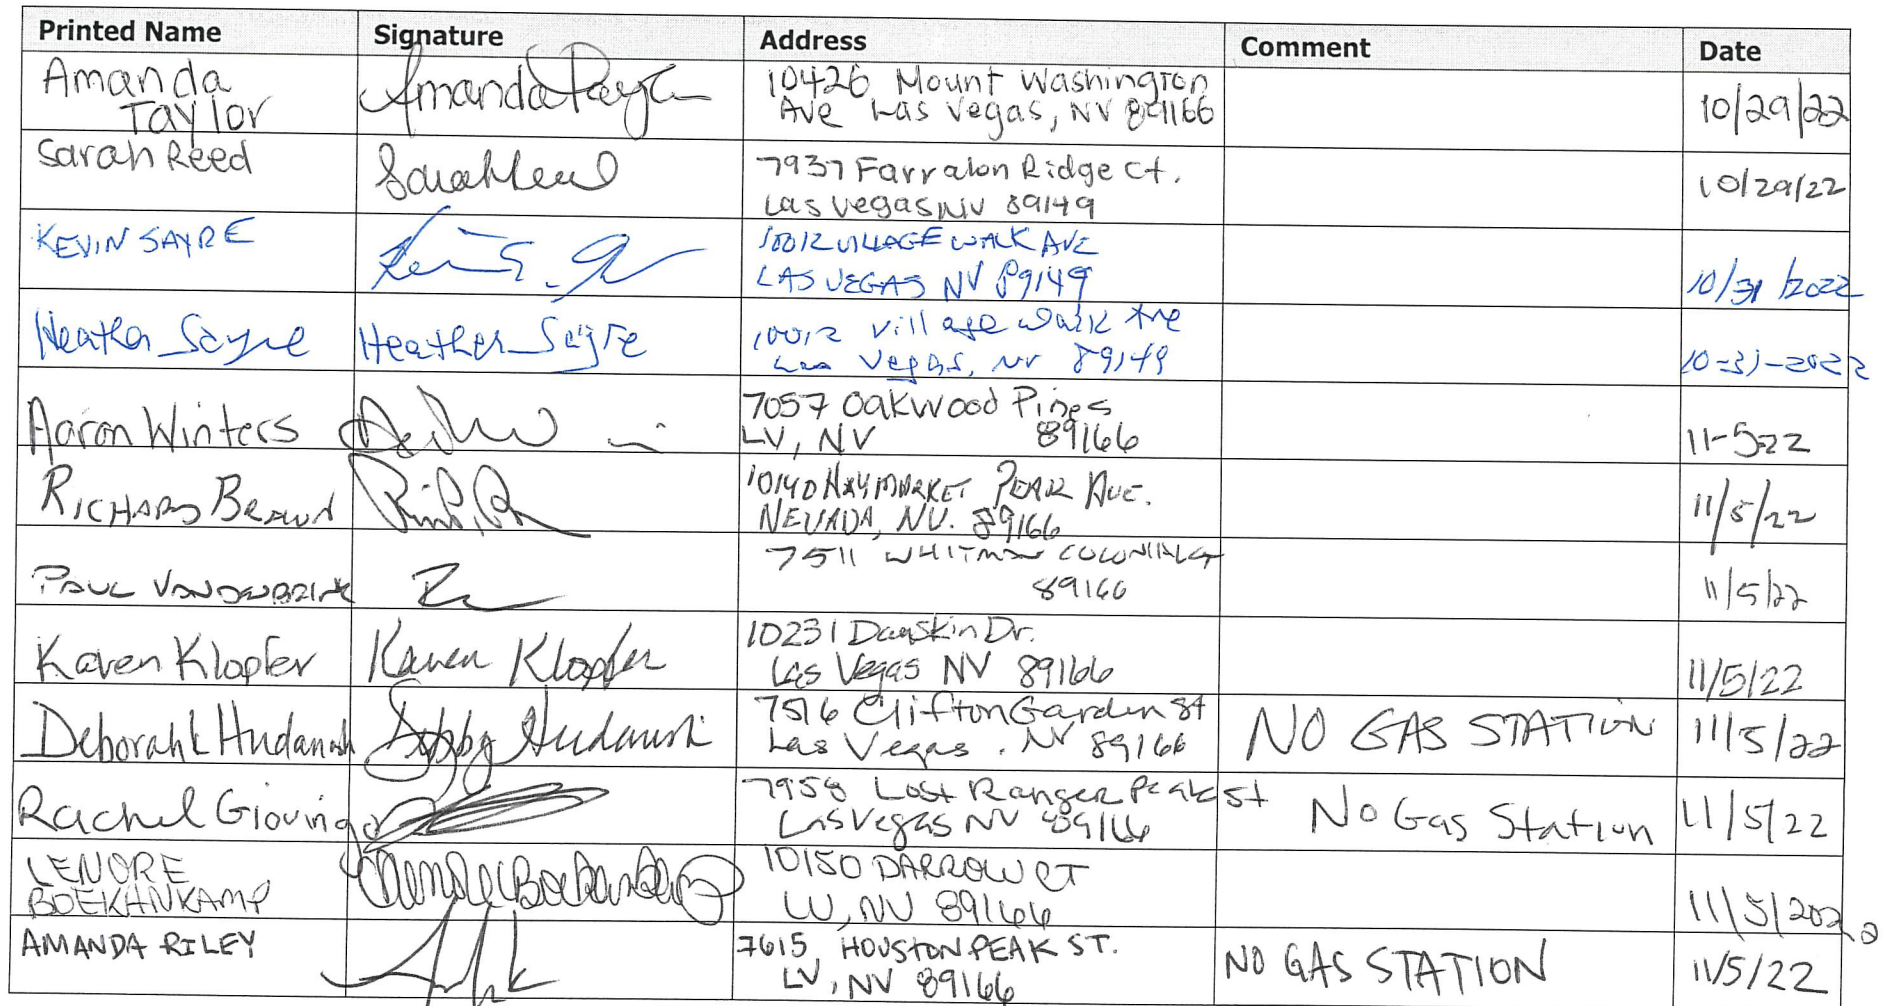 Printed Name Signature Address Comment Date
Amanda Taylor Amanda Taylor 10426 Mount Washington
Ave Las Vegas, NV 89166 10/29/22
Sarah Reed Sarah Reed 7937 Farralon Ridge Ct.
Las Vegas NV 89149 10/29/22
KEVIN SAYRE 10012 VILLAGE WALK AVE
LAS VEGAS NV 89149 10/31/2022
Heather Sayre Heather Sayre 10012 Village Walk Ave
Las Vegas, NV 89149 10-31-2022
Aaron Winters 7057 Oakwood Pines
LV, NV 89166 11-5-22
RICHARD BROWN 10140 HAYMARKET PEAK AVE.
NEVADA, NV. 89166 11/5/22
PAUL VANDENBRINK 7511 WHITMAN COLONIAL CT
89166 11/5/22
Karen Klopfer Karen Klopfer 10231 Danskin Dr.
Las Vegas NV 89166 11/5/22
Deborah L 7516 Clifton Garden St
Las Vegas, NV 89166 NO GAS STATION 11/5/22
Rachel Giovingo 7958 Lost Ranger Peak St
Las Vegas NV 89166 No Gas Station 11/5/22
LENORE
BOEKHNKAMP 10150 DARROW CT
LV, NV 89166 11/5/2022
AMANDA RILEY 7615 HOUSTON PEAK ST.
LV, NV 89166 NO GAS STATION 11/5/22